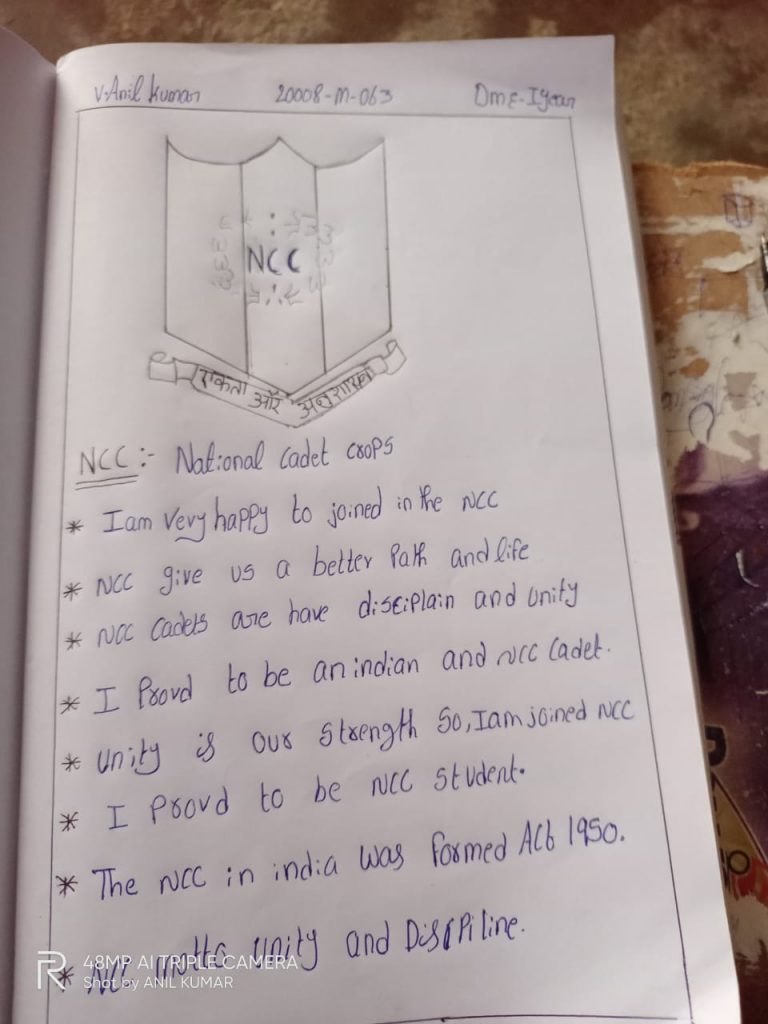 V.Anil kumar 20008-M-063 DME-I year
NCC
एकता और अनुशासन
NCC :- National cadet crops
* I am very happy to joined in the NCC
* NCC give us a better Path and life
* NCC Cadets are have disciplain and unity
* I Proud to be an indian and NCC Cadet.
* Unity is our strength So, I am joined NCC
* I Proud to be NCC student.
* The NCC in india was formed Act 1950.
* NCC motto unity and Discpiline.
48MP AI TRIPLE CAMERA
Shot by ANIL KUMAR